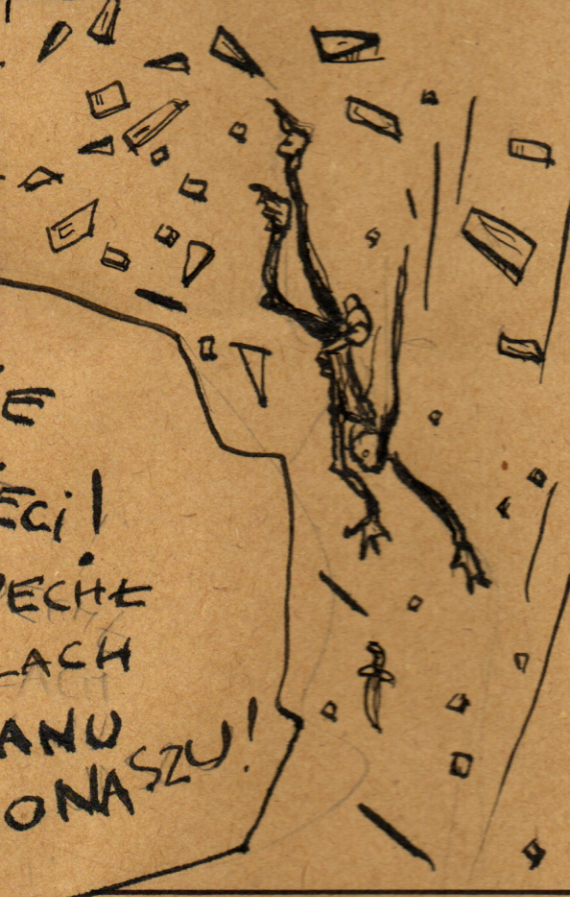 E
ECi!
PECHE
LACH
ANU
ONASZU!